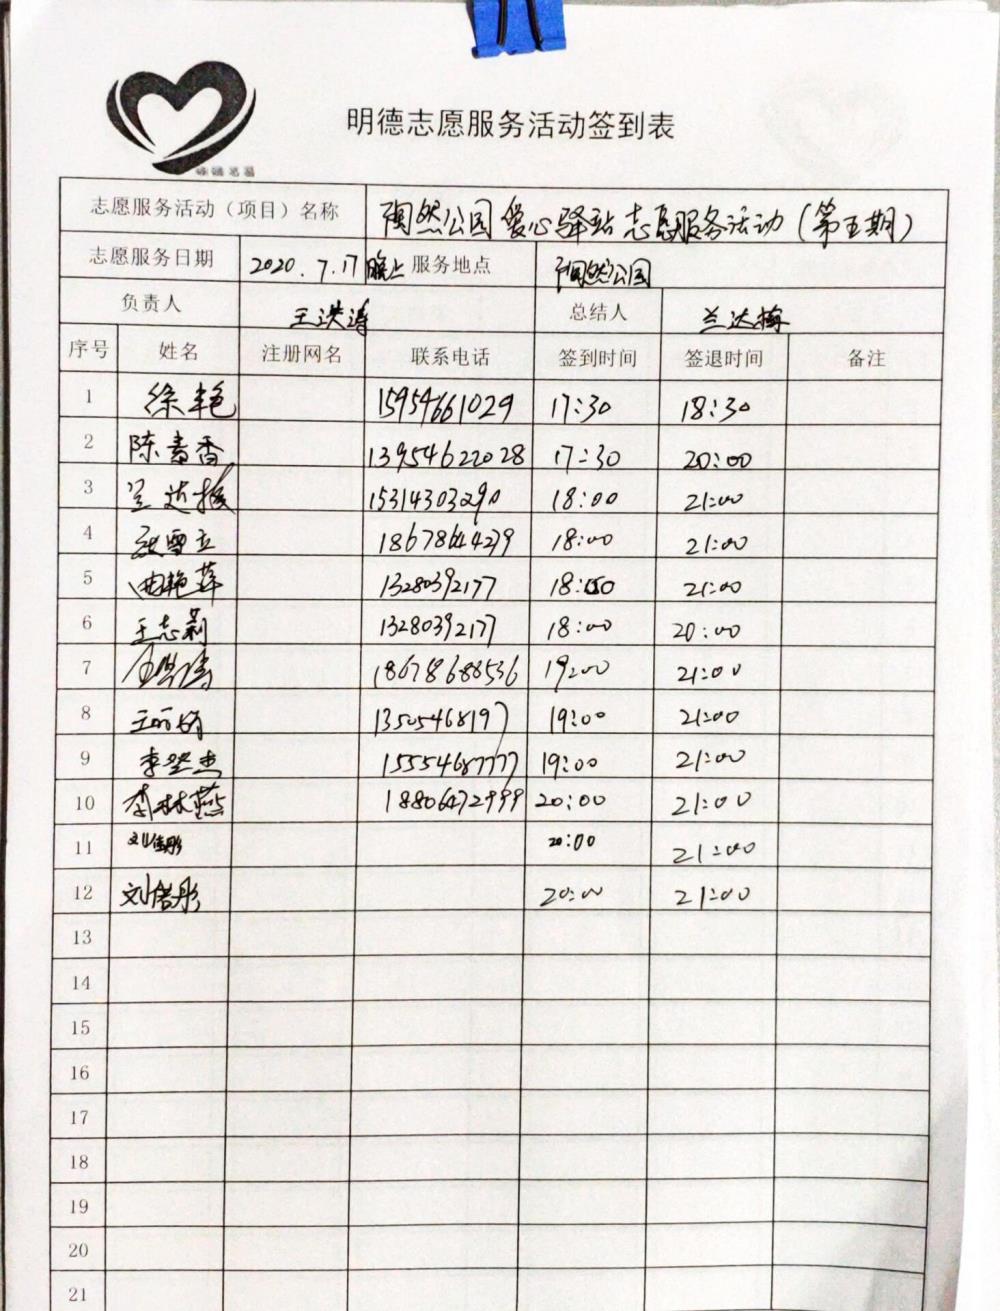 明德志愿服务活动签到表
志愿服务活动（项目）名称 陶然公园爱心驿站志愿服务活动（第五期）
志愿服务日期 2020.7.17晚上 服务地点 陶然公园
负责人 王洪涛 总结人 兰达梅
序号 姓名 注册网名 联系电话 签到时间 签退时间 备注
1 徐艳 15954661029 17:30 18:30
2 陈素香 13954622028 17:30 20:00
3 15314303290 18:00 21:00
4 18:00 21:00
5 曲艳萍 13280392177 21:00
6 王志莉 13280392177 18:00 20:00
7 18678688536 19:00 21:00
8 19:00 21:00
9 19:00 21:00
10 李林燕 18806472999 20:00 21:00
11 20:00 21:00
12 20:00 21:00
13
14
15
16
17
18
19
20
21